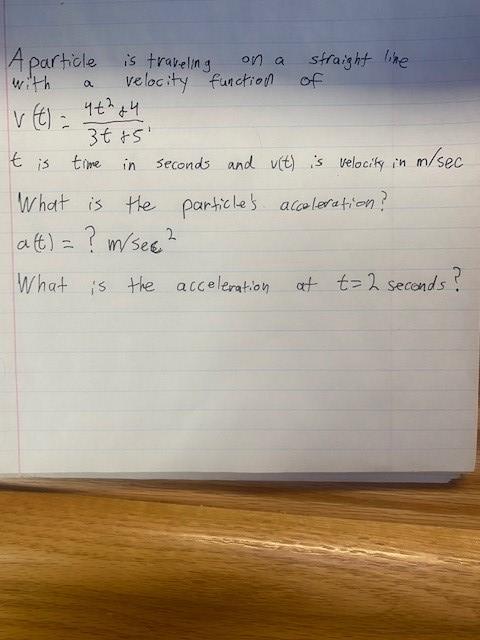 A particle is traveling on a straight line
with a velocity function of
v(t) = (4t² + 4) / (3t + 5),
t is time in seconds and v(t) is velocity in m/sec
What is the particle's acceleration?
a(t) = ? m/sec²
What is the acceleration at t=2 seconds?